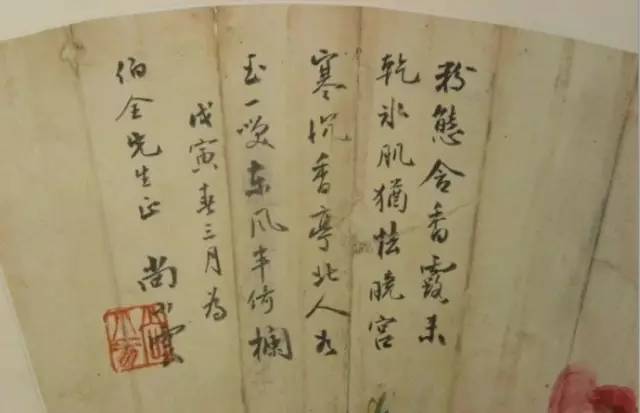 粉態含香露未
乾氷肌猶怯曉宮
寒沉香亭北人如
玉一笑東風半倚欄
戊寅春三月為
伯全先生正 尚小雲